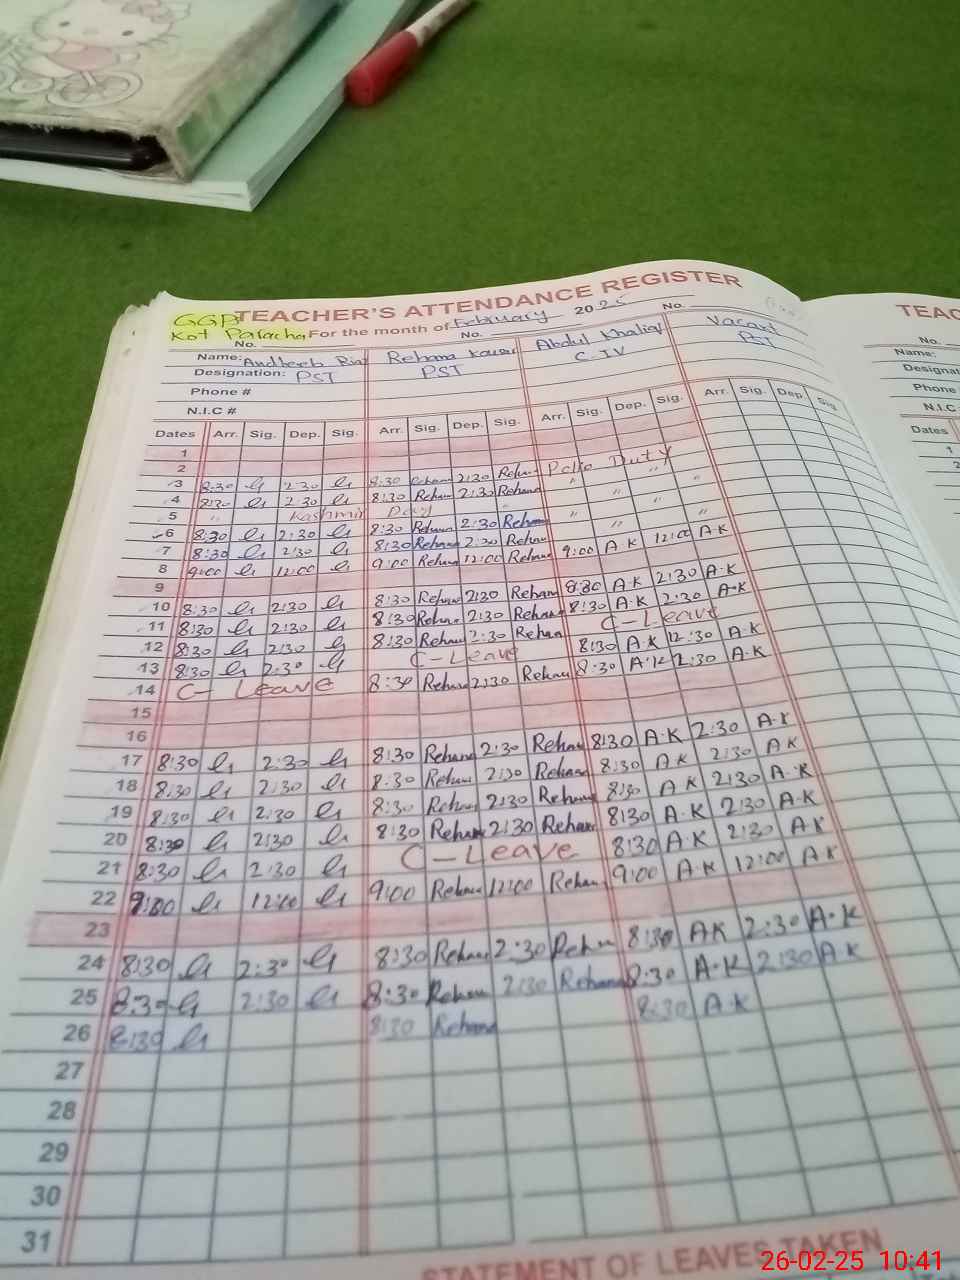 TEACHER'S ATTENDANCE REGISTER TEAC
GGPS
Kot Paracha For the month of February 2025
No. No. No. No.
Name: Andleeb Riaz Rehana Kausar Abdul Khaliq Vacant Name:
Designation: PST PST C-IV PST Designat
Phone # Phone
N.I.C # N.I.C
Dates Arr. Sig. Dep. Sig. Arr. Sig. Dep. Sig. Arr. Sig. Dep. Sig. Arr. Sig. Dep. Sig Dates
1 1
2
3 8:30 2:30 8:30 Rehana 2:30 Rehana Polio Duty
4 8:30 2:30 8:30 Rehana 2:30 Rehana " "
5 " Kashmir Day " " "
6 8:30 2:30 8:30 Rehana 2:30 Rehana " "
7 8:30 2:30 8:30 Rehana 2:30 Rehana "
8 9:00 12:00 9:00 Rehana 12:00 Rehana 9:00 A K 12:00 A K
9
10 8:30 2:30 8:30 Rehana 2:30 Rehana 8:30 A.K 2:30 A.K
11 8:30 2:30 8:30 Rehana 2:30 Rehana 8:30 A.K 2:30 A.K
12 8:30 2:30 8:30 Rehana 2:30 Rehana C-Leave
13 8:30 2:30 C-Leave 8:30 A.K 12:30 A.K
14 C-Leave 8:30 Rehana 2:30 Rehana 8:30 A.K 2:30 A.K
15
16
17 8:30 2:30 8:30 Rehana 2:30 Rehana 8:30 A.K 2:30 A.K
18 8:30 2:30 8:30 Rehana 2:30 Rehana 8:30 A K 2:30 A K
19 8:30 2:30 8:30 Rehana 2:30 Rehana 8:30 A K 2:30 A.K
20 8:30 2:30 8:30 Rehana 2:30 Rehana 8:30 A.K 2:30 A.K
21 8:30 2:30 C-Leave 8:30 A.K 2:30 A K
22 9:00 12:00 9:00 Rehana 12:00 Rehana 9:00 A.K 12:00 A K
23
24 8:30 2:30 8:30 Rehana 2:30 Rehana 8:30 AK 2:30 A.K
25 8:30 2:30 8:30 Rehana 2:30 Rehana 8:30 A.K 2:30 A K
26 8:30 8:30 Rehana 8:30 A K
27
28
29
30
31
STATEMENT OF LEAVES TAKEN
26-02-25 10:41